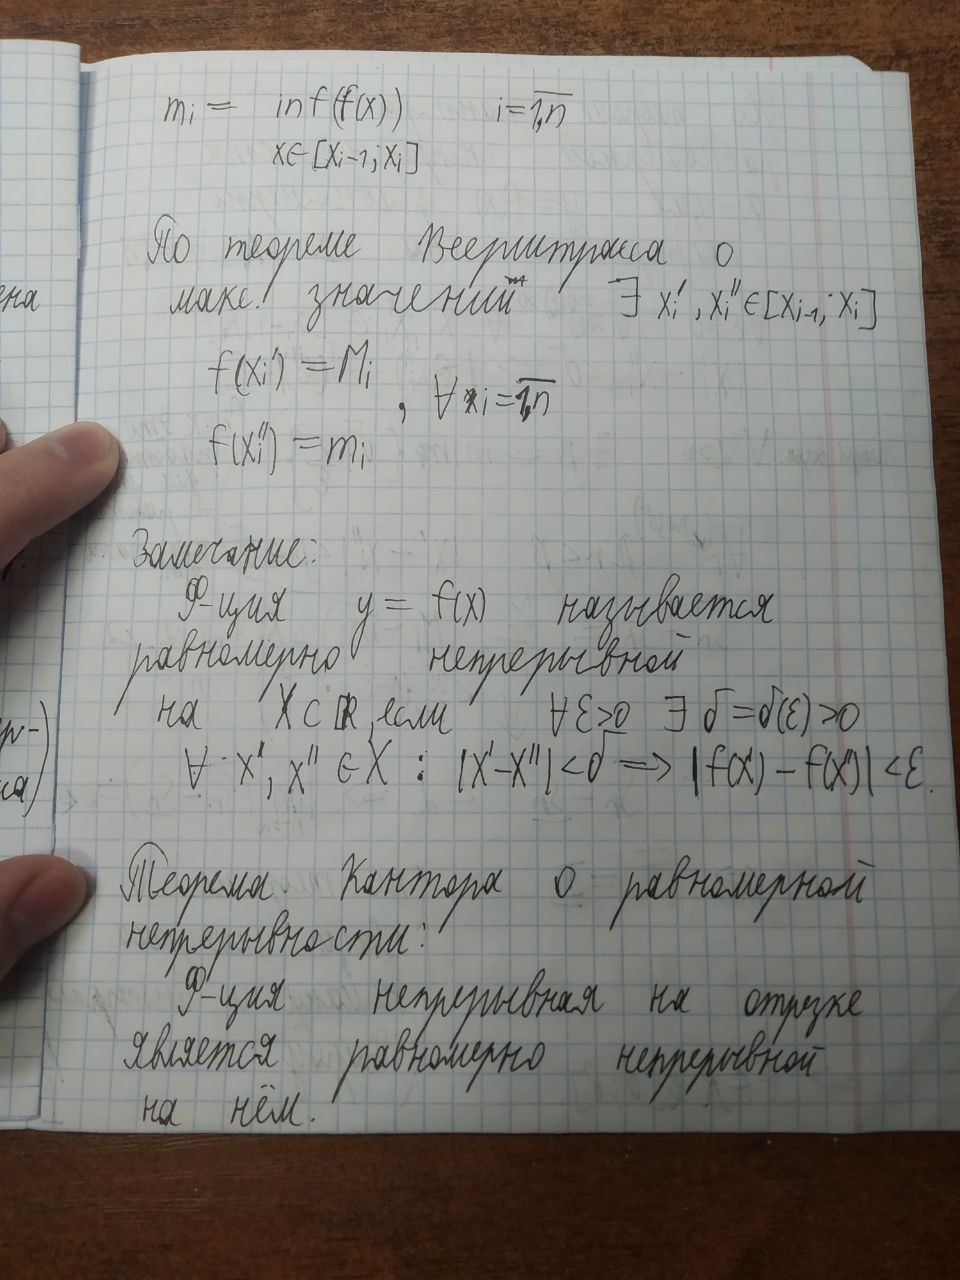 mᵢ = inf(f(x)) i = 1,n̅
x∈[xᵢ₋₁; xᵢ]
По теореме Веерштрасса о
макс. значений ∃ xᵢ', xᵢ'' ∈ [xᵢ₋₁; xᵢ]
f(xᵢ') = Mᵢ
, ∀ i = 1,n̅
f(xᵢ'') = mᵢ
Замечание:
Ф-ция y = f(x) называется
равномерно непрерывной
на X ⊂ ℝ, если ∀ε>0 ∃ δ = δ(ε)>0
∀ x', x'' ∈ X : |x'-x''| < δ ⟹ |f(x') - f(x'')| < ε.
Теорема Кантора о равномерной
непрерывности:
Ф-ция непрерывная на отрезке
является равномерно непрерывной
на нём.